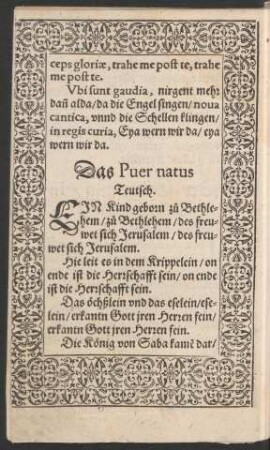 ceps gloriæ, trahe me post te, trahe
me post te.
Vbi sunt gaudia, nirgent mehr
dañ alda/da die Engel singen/noua
cantica, vnnd die Schellen klingen/
in regis curia, Eya wern wir da/eya
wern wir da.
Das Puer natus
Teutsch.
EIN Kind geborn zů Bethle-
hem/zů Bethlehem/des freu-
wet sich Jerusalem/des freu-
wet sich Jerusalem.
Hie leit es in dem Krippelein/on
ende ist die Herrschafft sein/on ende
ist die Herrschafft sein.
Das öchßlein vnd das eselein/ese-
lein/erkantn Gott jren Herren fein/
erkantn Gott jren Herren fein.
Die König von Saba kamē dar/